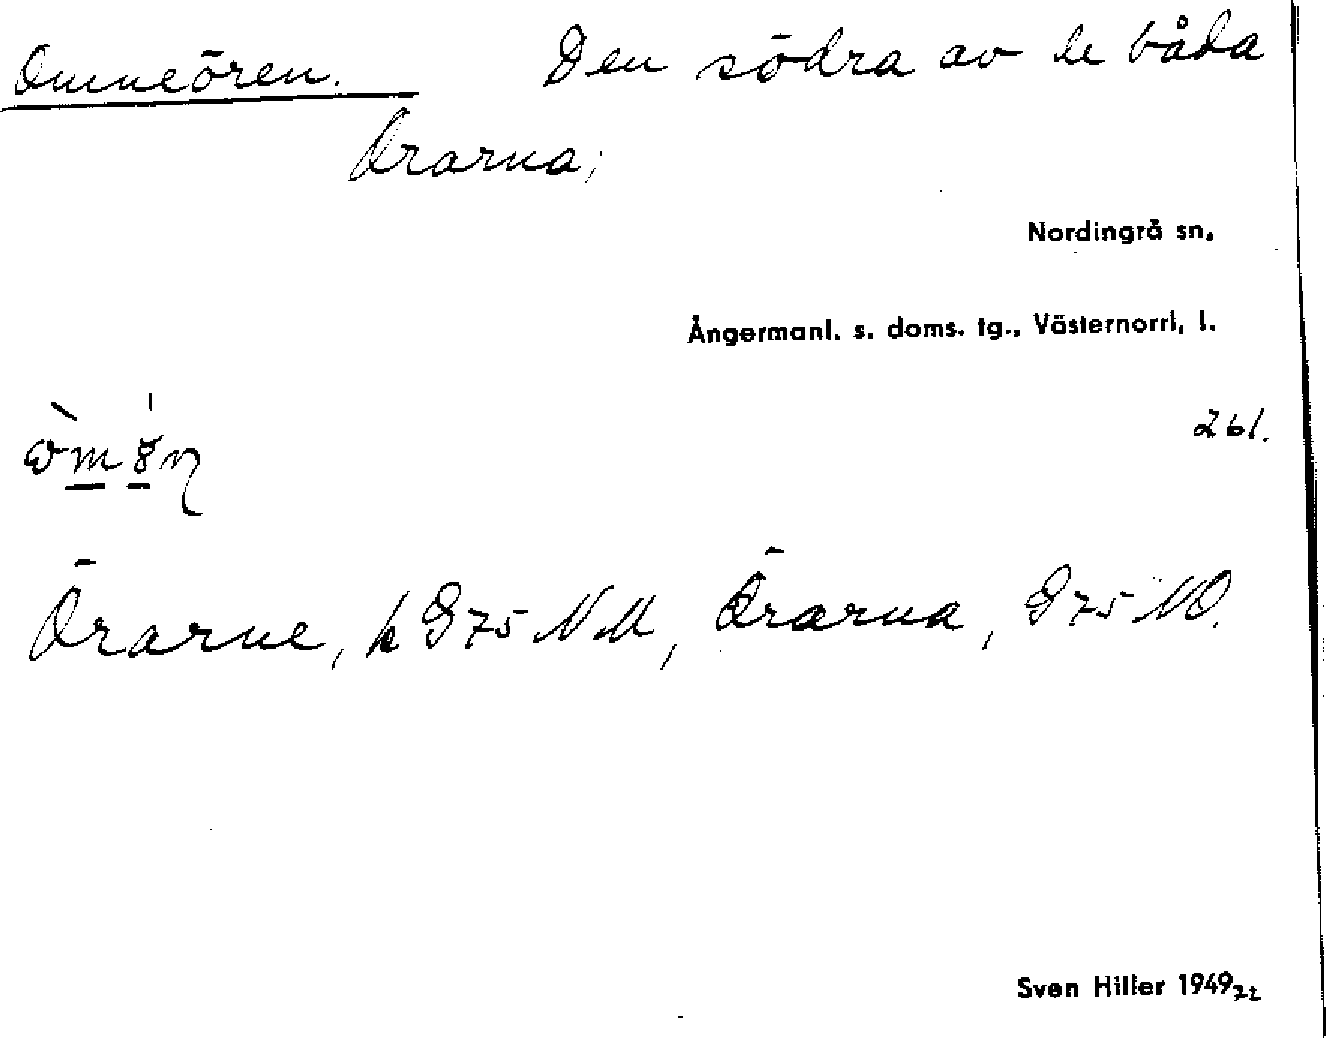 Omneören. Den södra av de båda
Örarna;
Nordingrå sn.
Ångermanl. s. doms. tg., Västernorrl. l.
261.
Örarne, k G75 NM, Örarna, G75 NO.
Sven Hiller 1949